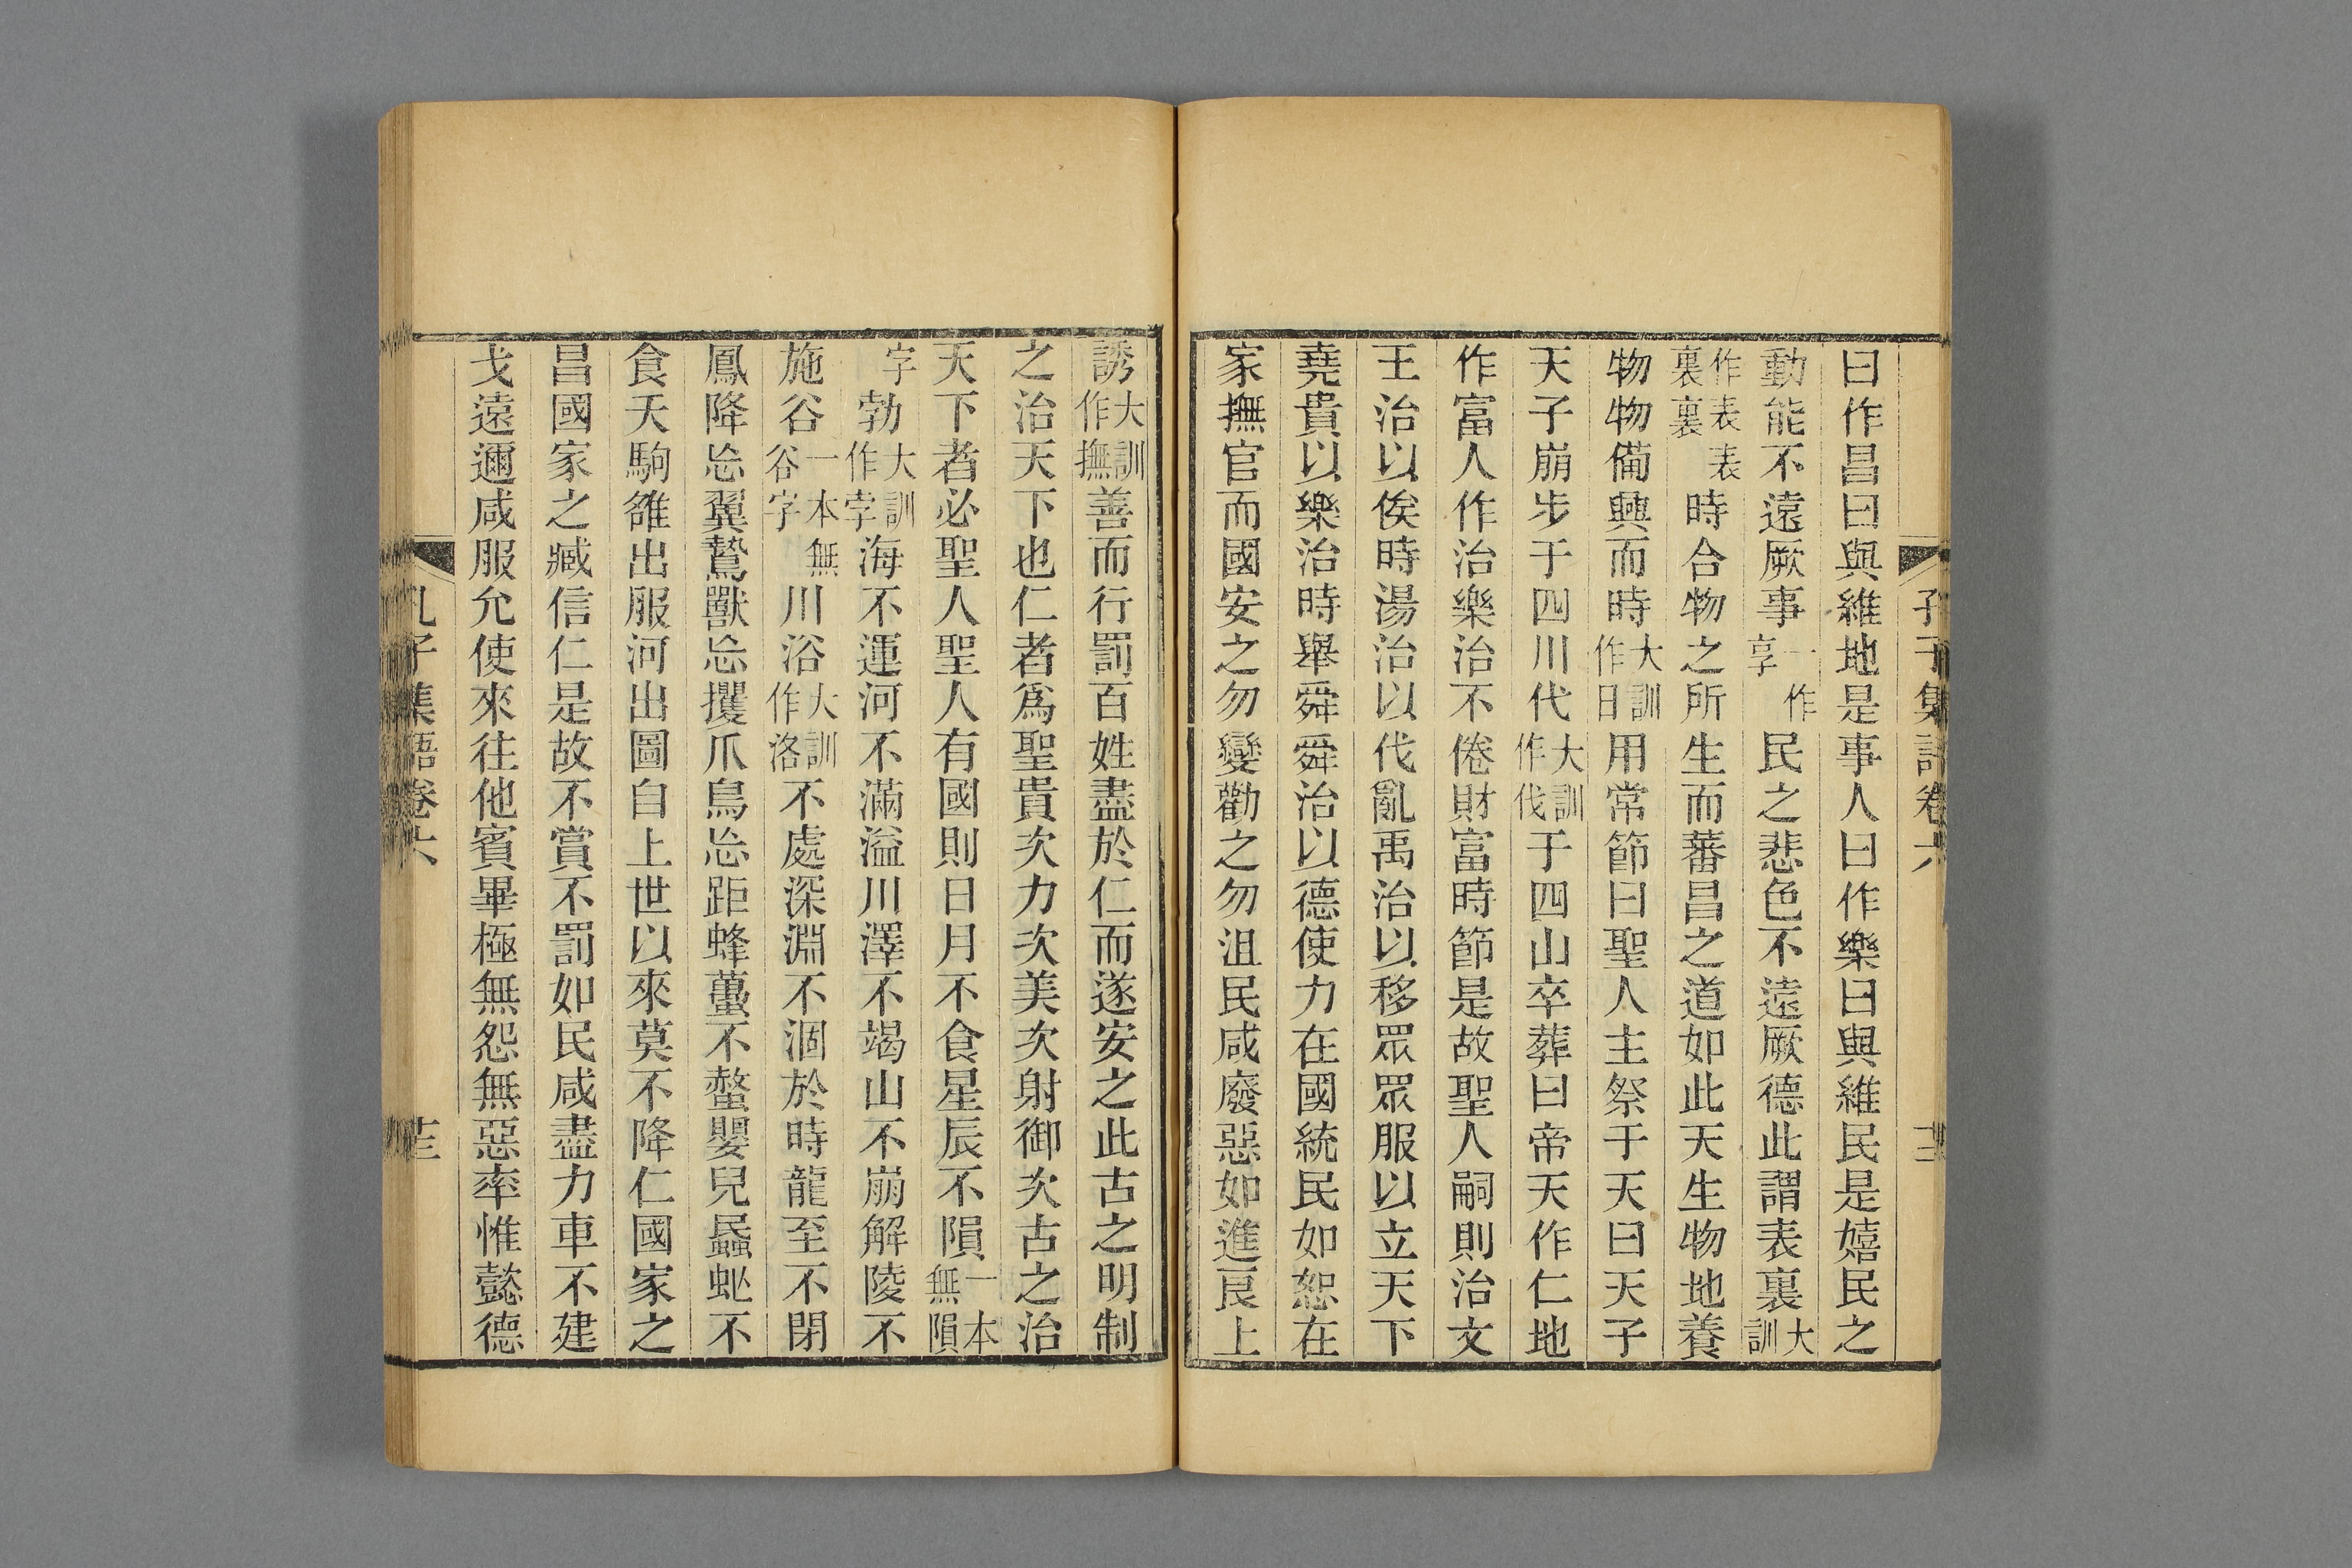 孔子集語卷六
曰作昌曰與維地是事人曰作樂曰與維民是嬉民之
動能不遠厥事一作享民之悲色不遠厥德此謂表裏大訓
作表表裏裏時合物之所生而蕃昌之道如此天生物地養
物物備興而時大訓作日用常節曰聖人主祭于天曰天子
天子崩步于四川代大訓作伐于四山卒葬曰帝天作仁地
作富人作治樂治不倦財富時節是故聖人嗣則治文
王治以俟時湯治以伐亂禹治以移眾眾服以立天下
堯貴以樂治時舉舜舜治以德使力在國統民如恕在
家撫官而國安之勿變勸之勿沮民咸廢惡如進良上
誘大訓作撫善而行罰百姓盡於仁而遂安之此古之明制
之治天下也仁者為聖貴次力次美次射御次古之治
天下者必聖人聖人有國則日月不食星辰不隕一本無隕
字勃大訓作孛海不運河不滿溢川澤不竭山不崩解陵不
施谷一本無谷字川浴大訓作洛不處深淵不涸於時龍至不閉
鳳降忘翼鷙獸忘攫爪鳥忘距蜂蠆不螫嬰兒蟁虻不
食天駒雒出服河出圖自上世以來莫不降仁國家之
昌國家之臧信仁是故不賞不罰如民咸盡力車不建
戈遠邇咸服允使來往他賓畢極無怨無惡率惟懿德
孔子集語卷六